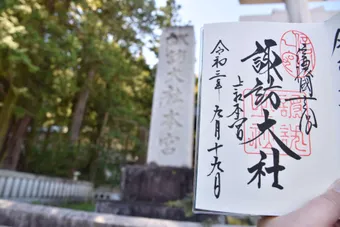 諏訪大社本宮
信濃國一之宮
諏訪大社
上社本宮
令和三年九月十九日